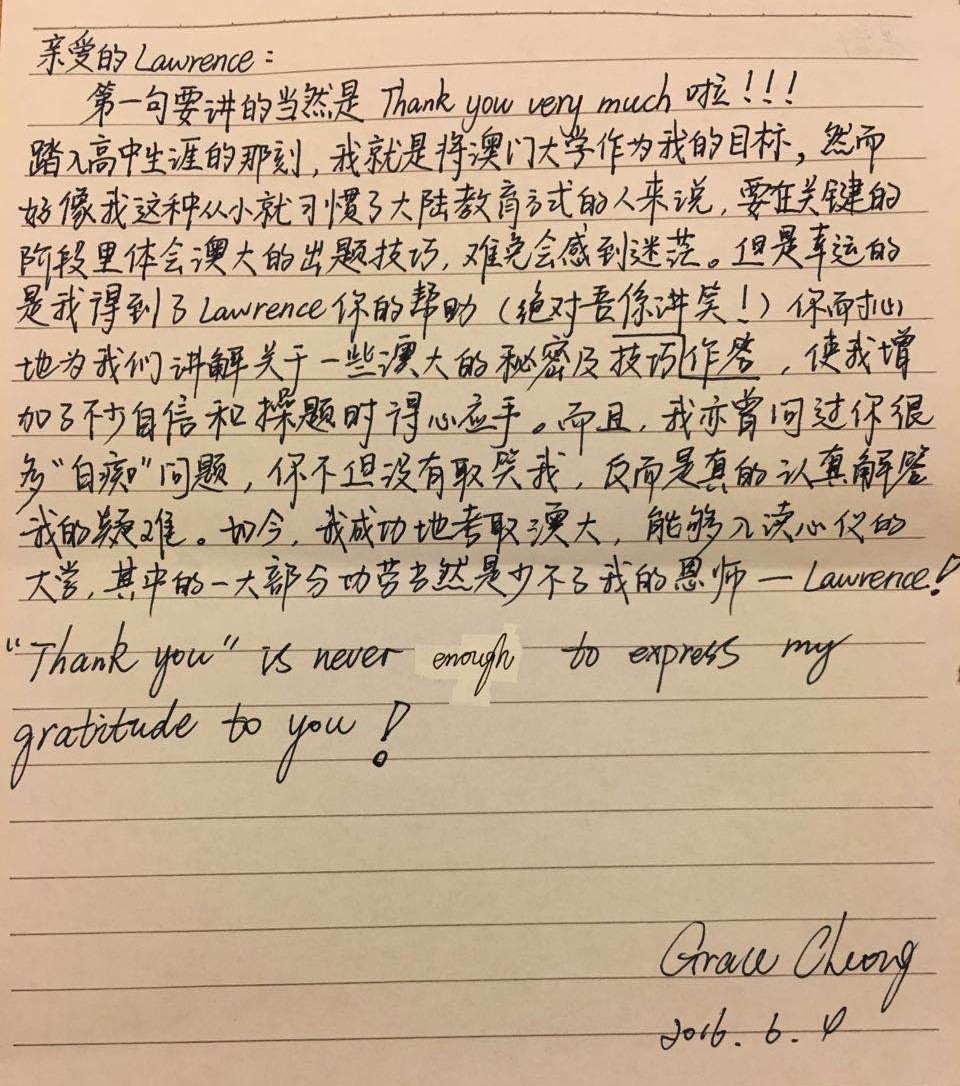 亲爱的Lawrence：
第一句要讲的当然是 Thank you very much 啦！！！
踏入高中生涯的那刻，我就是将澳门大学作为我的目标，然而
好像我这种从小就习惯了大陆教育方式的人来说，要在关键的
阶段里体会澳大的出题技巧，难免会感到迷茫。但是幸运的
是我得到了Lawrence你的帮助（绝对吾係讲笑！）你耐心
地为我们讲解关于一些澳大的秘密及技巧作答，使我增
加了不少自信和操题时得心应手。而且，我亦曾问过你很
多“白痴”问题，你不但没有取笑我，反而是真的认真解答
我的疑难。如今，我成功地考取澳大，能够入读心仪的
大学，其中的一大部分功劳当然是少不了我的恩师—Lawrence!
“Thank you” is never enough to express my
gratitude to you !
Grace Cheong
2016. 6. 4